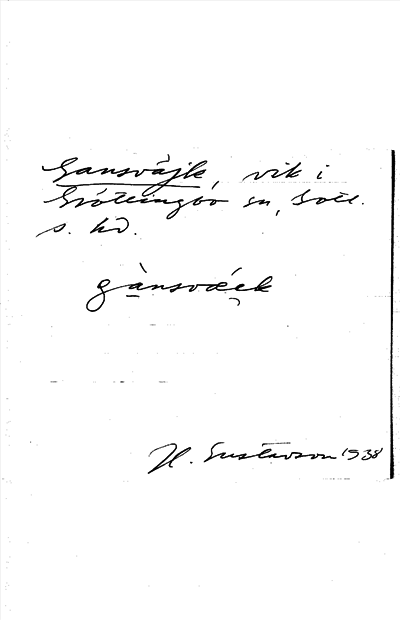 Gansvājk, vik i
Grötlingbo sn, Gotl.
s. hd.
gànsvæik
H. Gustavson 1938